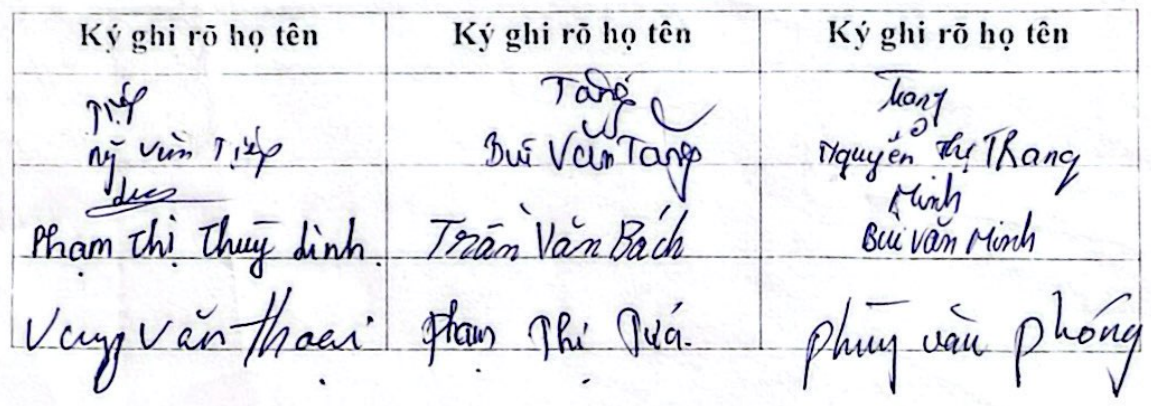 Ký ghi rõ họ tên Ký ghi rõ họ tên Ký ghi rõ họ tên
Tiếp Tăng Thang
Văn Tiếp Bùi Văn Tăng Nguyễn Thị Thang
Minh
Phạm Thị Thuỳ dinh Trần Văn Bách Bùi Văn Minh
Văn Thoại Phạm Thị Phùng văn phóng